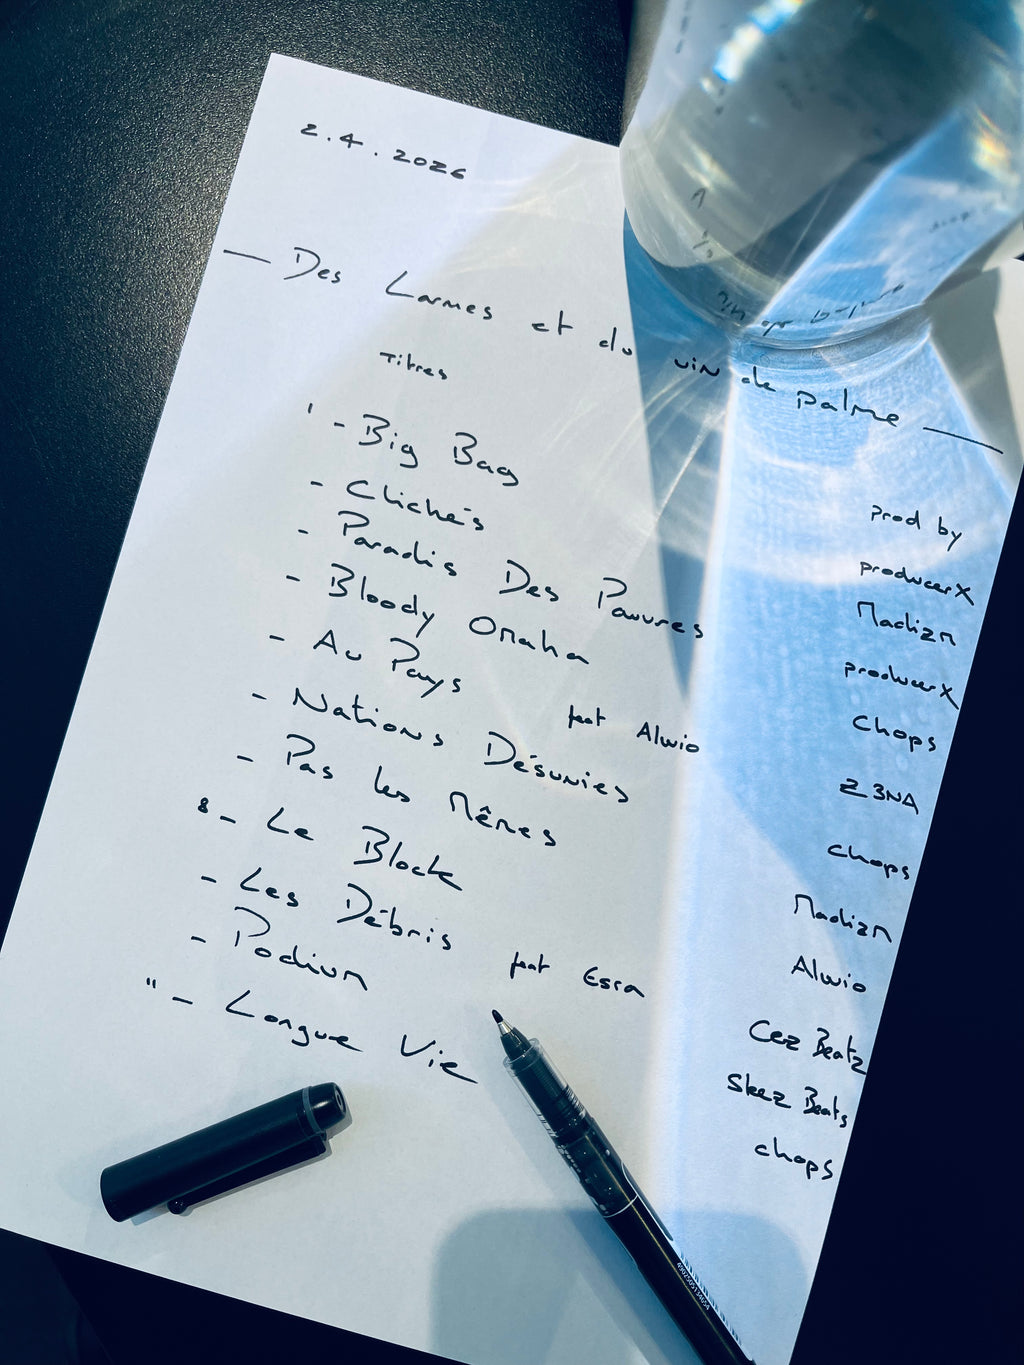 2.4.2026
— Des Larmes et du vin de palme —
Titres
prod by
1 - Big Bag
producerX
- Clichés
Madizm
- Paradis Des Pauvres
producerX
- Bloody Omaha
Chops
- Au Pays feat Alwio
Z3NA
- Nations Désunies
Chops
- Pas les Mêmes
Madizm
8 - Le Block
Alwio
- Les Débris feat Esra
Cez Beatz
- Podium
Skez Beats
11 - Longue Vie
chops